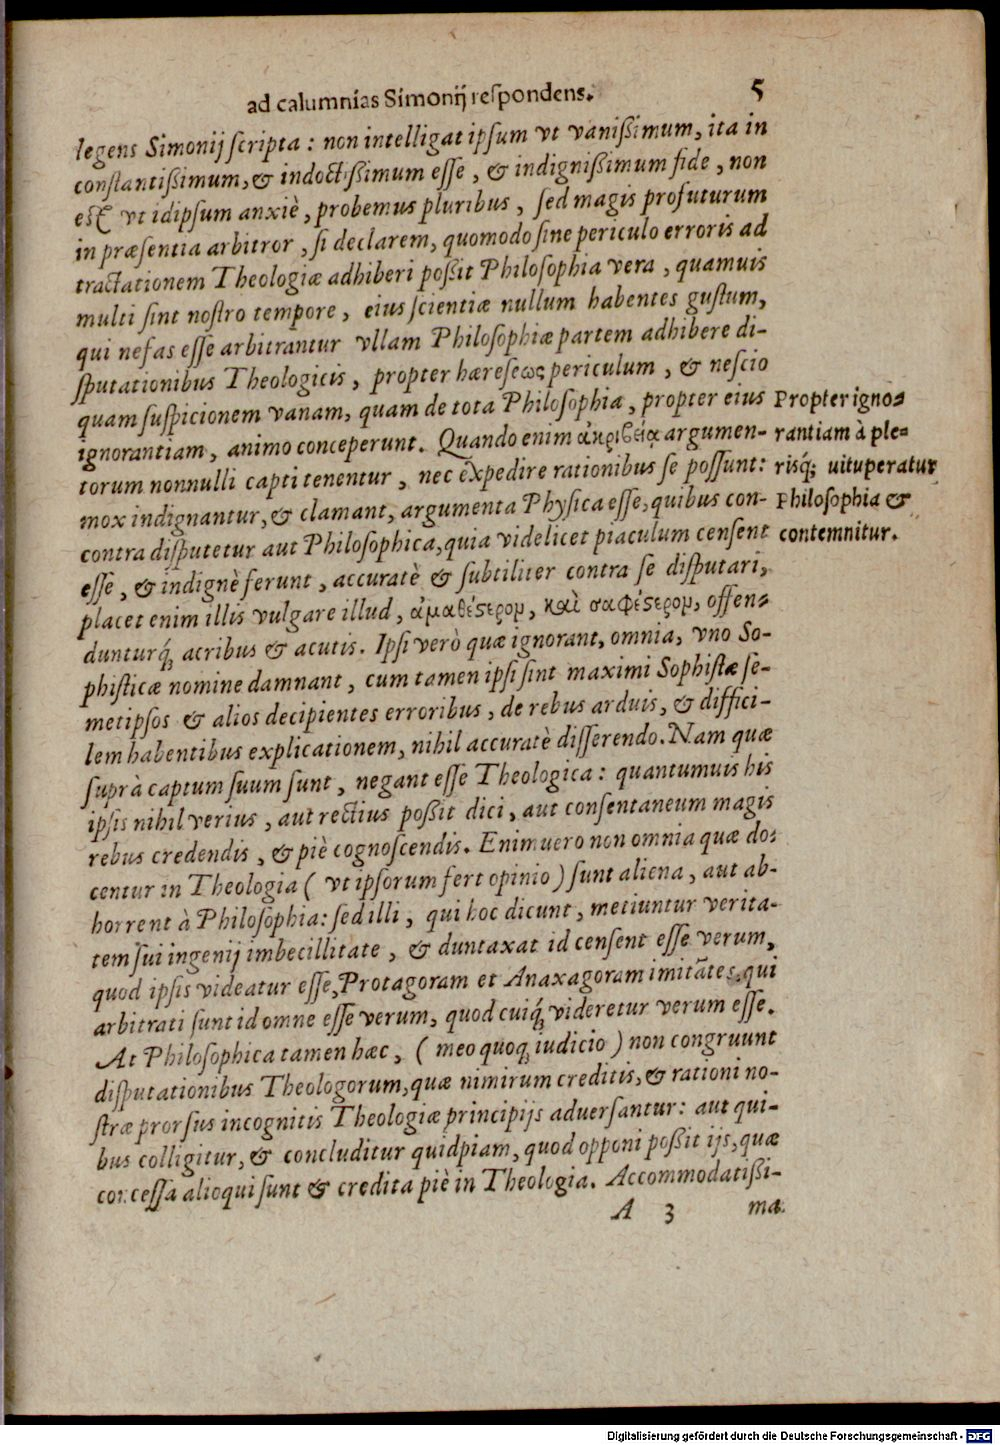 ad calumnias Simonij respondens. 5
legens Simonij scripta: non intelligat ipsum vt vanißimum, ita in
constantißimum, & indoctißimum esse, & indignißimum fide, non
est vt idipsum anxiè, probemus pluribus, sed magis profuturum
in præsentia arbitror, si declarem, quomodo sine periculo erroris ad
tractationem Theologiæ adhiberi poßit Philosophia vera, quamuis
multi sint nostro tempore, eius scientiæ nullum habentes gustum,
qui nefas esse arbitrantur vllam Philosophiæ partem adhibere di-
sputationibus Theologicis, propter hæreseως periculum, & nescio
quam suspicionem vanam, quam de tota Philosophia, propter eius
ignorantiam, animo conceperunt. Quando enim ἀκριβείᾳ argumen-
torum nonnulli capti tenentur, nec expedire rationibus se possunt:
mox indignantur, & clamant, argumenta Physica esse, quibus con-
contra disputetur aut Philosophica, quia videlicet piaculum censent
esse, & indignè ferunt, accuratè & subtiliter contra se disputari,
placet enim illis vulgare illud, ἀμαθέστερομ, καὶ σαφέστερομ, offen-
dunturq́; acribus & acutis. Ipsi verò quæ ignorant, omnia, vno So-
phisticæ nomine damnant, cum tamen ipsi sint maximi Sophistæ se-
metipsos & alios decipientes erroribus, de rebus arduis, & diffici-
lem habentibus explicationem, nihil accuratè disserendo. Nam quæ
suprà captum suum sunt, negant esse Theologica: quantumuis his
ipsis nihil verius, aut rectius poßit dici, aut consentaneum magis
rebus credendis, & piè cognoscendis. Enimuero non omnia quæ do-
centur in Theologia ( vt ipsorum fert opinio ) sunt aliena, aut ab-
horrent à Philosophia: sed illi, qui hoc dicunt, metiuntur verita-
tem sui ingenij imbecillitate, & duntaxat id censent esse verum,
quod ipsis videatur esse, Protagoram et Anaxagoram imitātes, qui
arbitrati sunt id omne esse verum, quod cuiq́; videretur verum esse.
At Philosophica tamen hæc, ( meo quoq; iudicio ) non congruunt
disputationibus Theologorum, quæ nimirum creditis, & rationi no-
stræ prorsus incognitis Theologiæ principijs aduersantur: aut qui-
bus colligitur, & concluditur quidpiam, quod opponi poßit ijs, quæ
concessa alioqui sunt & credita piè in Theologia. Accommodatißi-
A 3 ma
Propter igno-
rantiam à ple-
risq́; uituperatur
Philosophia &
contemnitur.
Digitalisierung gefördert durch die Deutsche Forschungsgemeinschaft - DFG